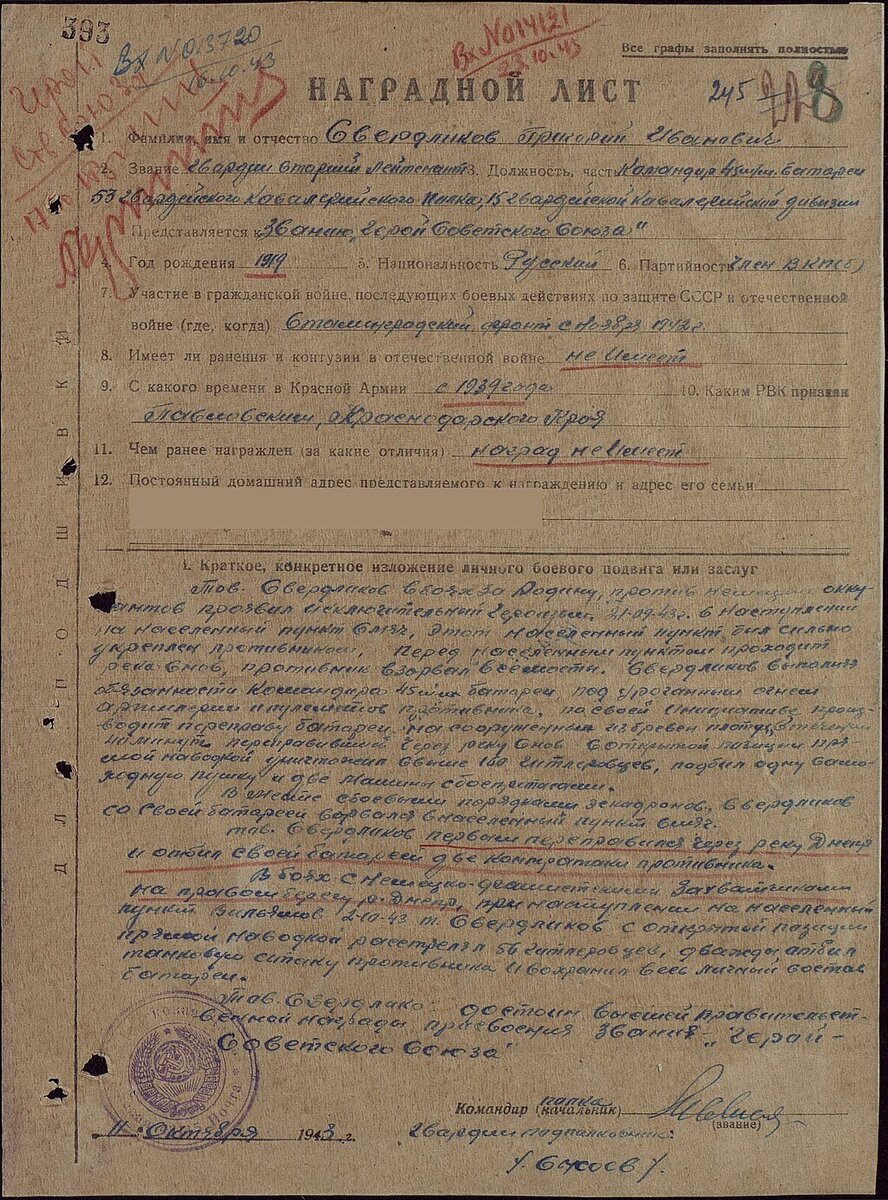 393
Вх N013720
26.10.43
Вх N014121
23.10.43
Все графы заполнять полностью
НАГРАДНОЙ ЛИСТ
245
228
1. Фамилия, имя и отчество Свердликов Григорий Иванович
2. Звание Гвардии Старший Лейтенант 3. Должность, часть Командир 45 м/м. батареи
53 Гвардейского Кавалерийского Полка, 15 Гвардейской Кавалерийской дивизии
Представляется к Званию „Герой Советского Союза"
4. Год рождения 1919 5. Национальность Русский 6. Партийность член ВКП(б)
7. Участие в гражданской войне, последующих боевых действиях по защите СССР и отечественной
войне (где, когда) Сталинградский фронт с Ноября 1942 г.
8. Имеет ли ранения и контузии в отечественной войне не имеет
9. С какого времени в Красной Армии с 1939 года 10. Каким РВК призван
Павловским, Краснодарского Края
11. Чем ранее награжден (за какие отличия) наград не имеет
12. Постоянный домашний адрес представляемого к награждению и адрес его семьи
I. Краткое, конкретное изложение личного боевого подвига или заслуг
Тов. Свердликов в боях за Родину, против немецких окку-
пантов проявил исключительный героизм. 21.09.43 г. в наступлении
на населенный пункт Смяч, Этот населенный пункт был сильно
укреплен противником, Перед населенным пунктом проходит
река Снов, противник взорвал все мосты. Свердликов выполняя
обязанности Командира 45 м/м батареи, под ураганным огнем
артилерии и пулеметов противника, по своей инициативе произ-
водит переправу батареи на сооруженных из бревен плотах, в течении
40 минут переправивший через реку Снов с открытой позиции пря-
мой наводкой уничтожил свыше 100 гитлеровцев, подбил одну само-
ходную пушку и две машины с боеприпасами.
Вместе с боевыми порядками эскадронов, Свердликов
со своей батареей ворвался в населенный пункт Смяч.
тов. Свердликов первым переправился через реку Днепр
и отбил своей батареей две контратаки противника.
В боях с немецко-фашистскими захватчиками
на правом берегу р. Днепр, при наступлении на населенный
пункт Вильямов 2-10-43 т. Свердликов с открытой позиции
прямой наводкой расстрелял 56 гитлеровцев, дважды отбил
танковую атаку противника и сохранил весь личный состав
батареи.
Тов. Свердликов достоин высшей правительст-
венной награды присвоения звания „Герой
Советского Союза"
Командир (начальник) полка
(звание)
Гвардии подполковник:
11 Октября 1943 г.
ДЛЯ ПОДШИВКИ